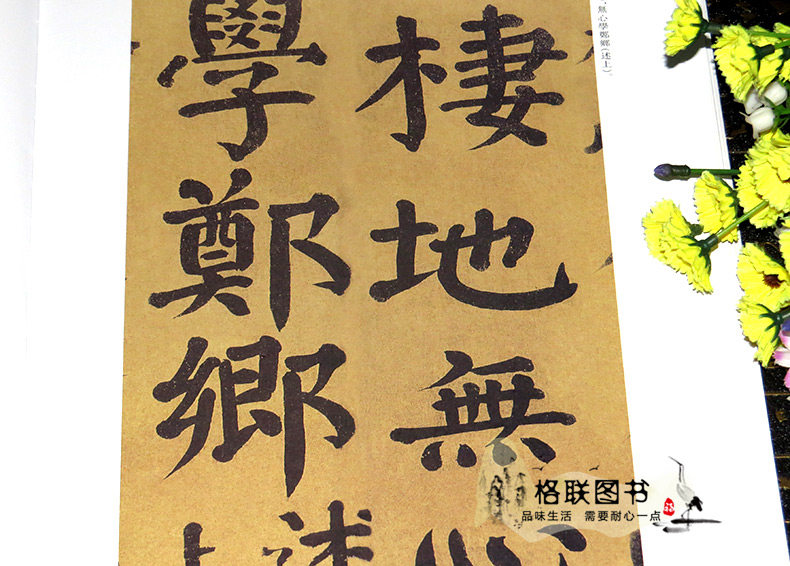 棲地無心
學鄭鄉述上
，無心學鄭鄉（述上）。
格联图书
品味生活 需要耐心一点